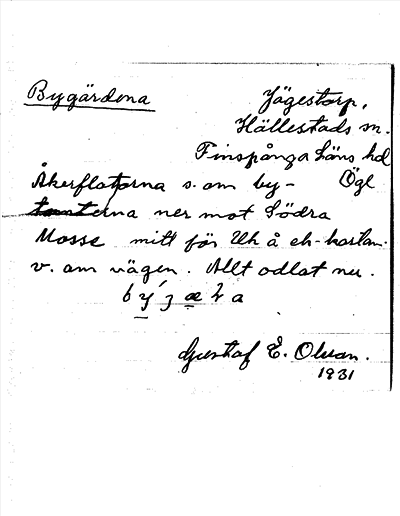 Bygärdena
Jägestorp,
Hällestads sn.
Finspånga läns hd
Ögl
Åkerflattarna s. om by-
tomterna ner mot Södra
Mosse mitt för Uh å eh-kartan.
v. om vägen. Allt odlat nu.
Gustaf E. Olsson.
1931